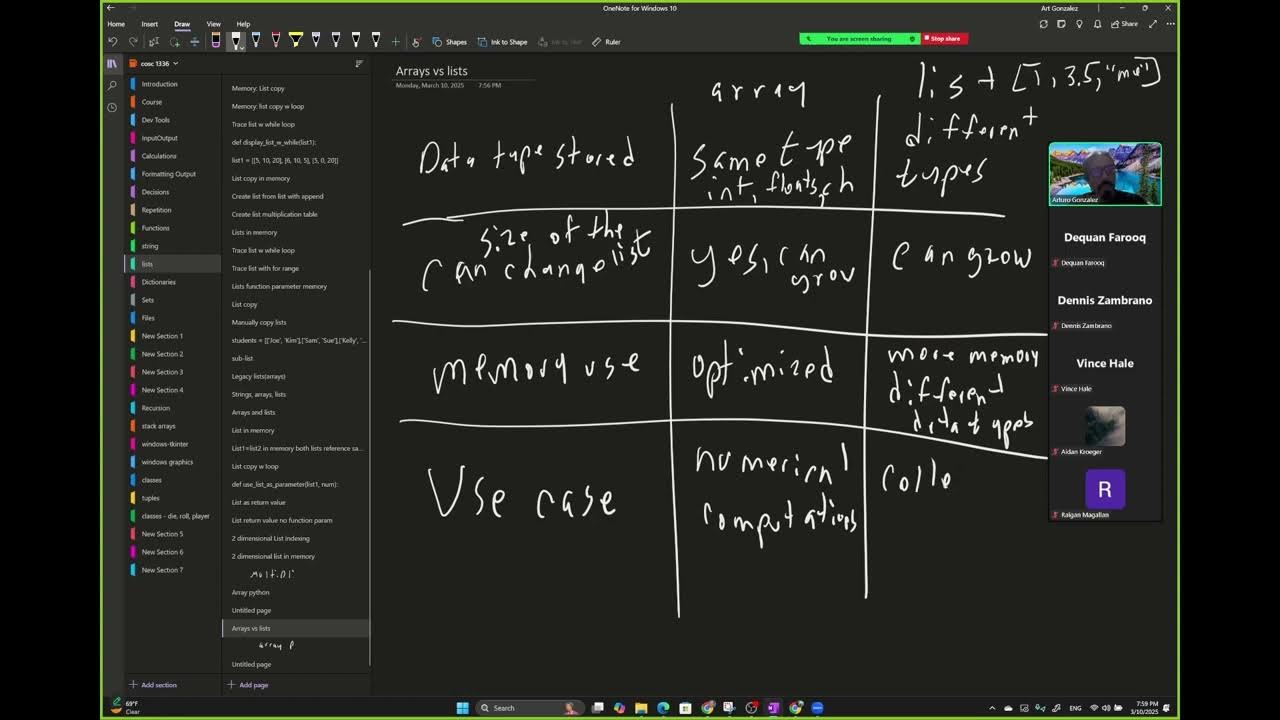 OneNote for Windows 10
Art Gonzalez
Home Insert Draw View Help
Share
Shapes
Ink to Shape
Ink to Math
Ruler
You are screen sharing
Stop share
cosc 1336
Introduction
Course
Dev Tools
InputOutput
Calculations
Formatting Output
Decisions
Repetition
Functions
string
lists
Dictionaries
Sets
Files
New Section 1
New Section 2
New Section 3
New Section 4
Recursion
stack arrays
windows-tkinter
windows graphics
classes
tuples
classes - die, roll, player
New Section 5
New Section 6
New Section 7
Add section
Memory: List copy
Memory: list copy w loop
Trace list w while loop
def display_list_w_while(list1):
list1 = [[5, 10, 20], [6, 10, 5], [5, 0, 20]]
List copy in memory
Create list from list with append
Create list multiplication table
Lists in memory
Trace list w while loop
Trace list with for range
Lists function parameter memory
List copy
Manually copy lists
students = [['Joe', 'Kim'],['Sam', 'Sue'],['Kelly', '...
sub-list
Legacy lists(arrays)
Strings, arrays, lists
Arrays and lists
List in memory
List1=list2 in memory both lists reference sa...
List copy w loop
def use_list_as_parameter(list1, num):
List as return value
List return value no function param
2 dimensional List indexing
2 dimensional list in memory
multi.Di
Array python
Untitled page
Arrays vs lists
array p
Untitled page
Add page
Arrays vs lists
Monday, March 10, 2025 7:56 PM
array
list [1, 3.5, "me"]
Data type stored
same type
int, floats, ch
different
types
size of the
can change list
yes, can
grow
can grow
memory use
optimized
more memory
different
data types
Use case
numerical
computations
colle
Arturo Gonzalez
Dequan Farooq
Dequan Farooq
Dennis Zambrano
Dennis Zambrano
Vince Hale
Vince Hale
Aidan Kroeger
R
Raigan Magallan
69°F
Clear
Search
ENG
7:59 PM
3/10/2025